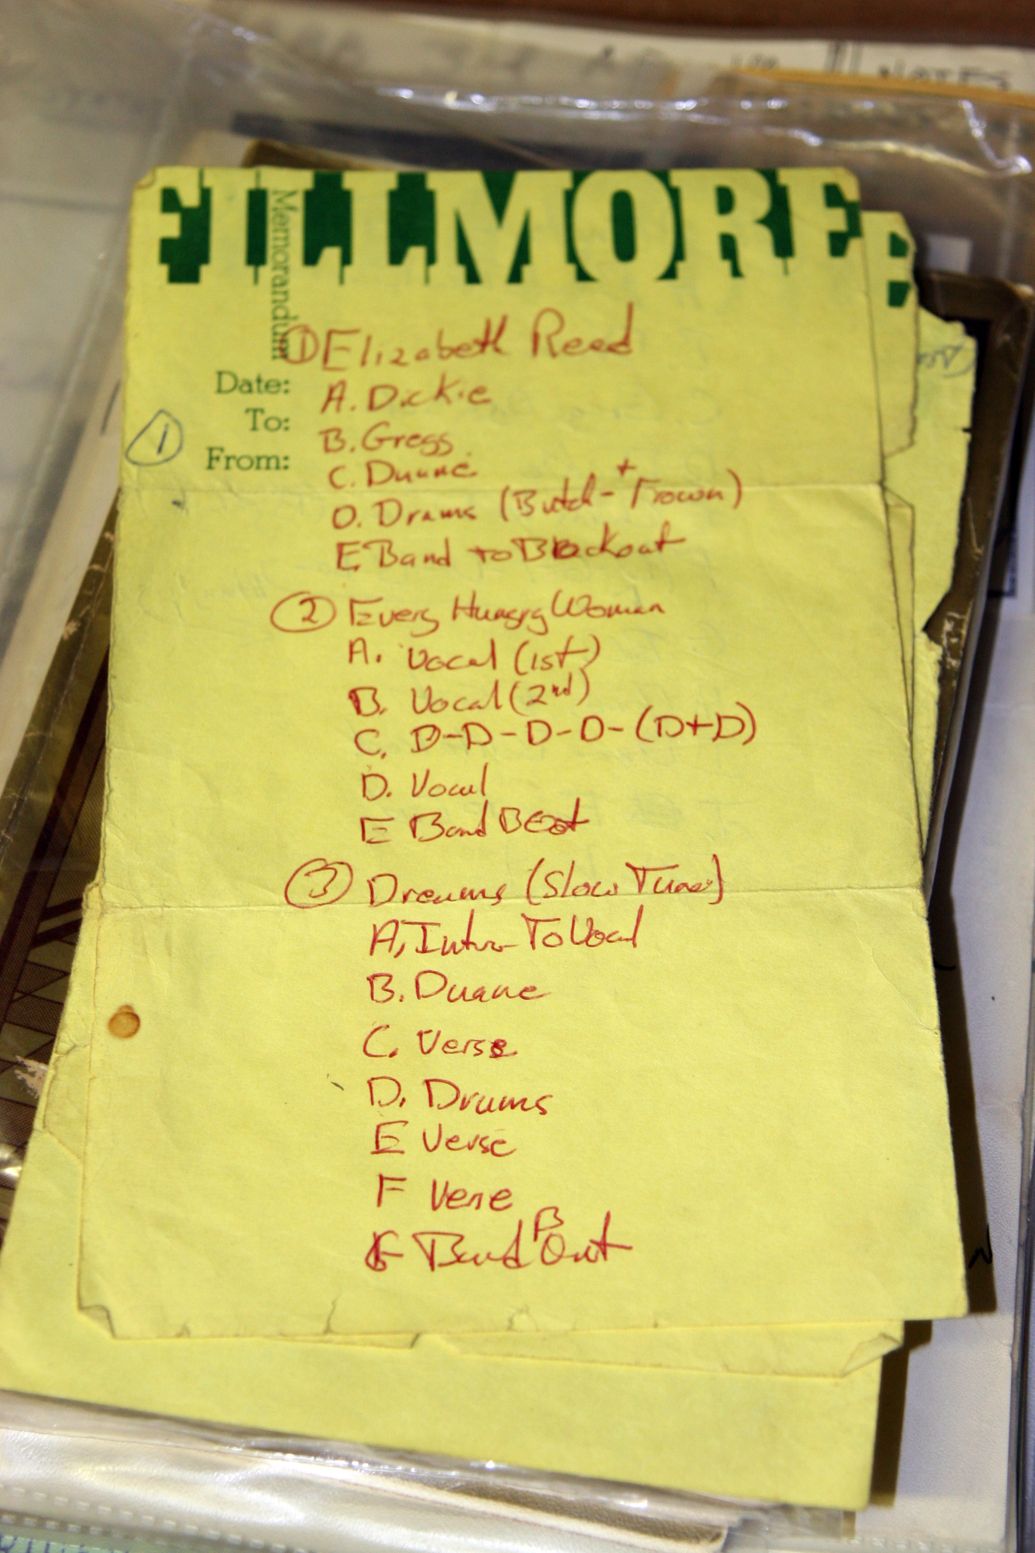 NOTES
FILLMORE E
Memorandum
① Elizabeth Reed
Date: A. Dickie
To: B. Gregg
① From: C. Duane
D. Drums (Butch - + Frown)
E. Band to Blackout
② Every Hungry Woman
A. Vocal (1st)
B. Vocal (2nd)
C. D-D-D-D-(D+D)
D. Vocal
E Band
③ Dreams (Slow Tune)
A, Intro To Vocal
B. Duane
C. Verse
D. Drums
E Verse
F Verse
G Band B Out